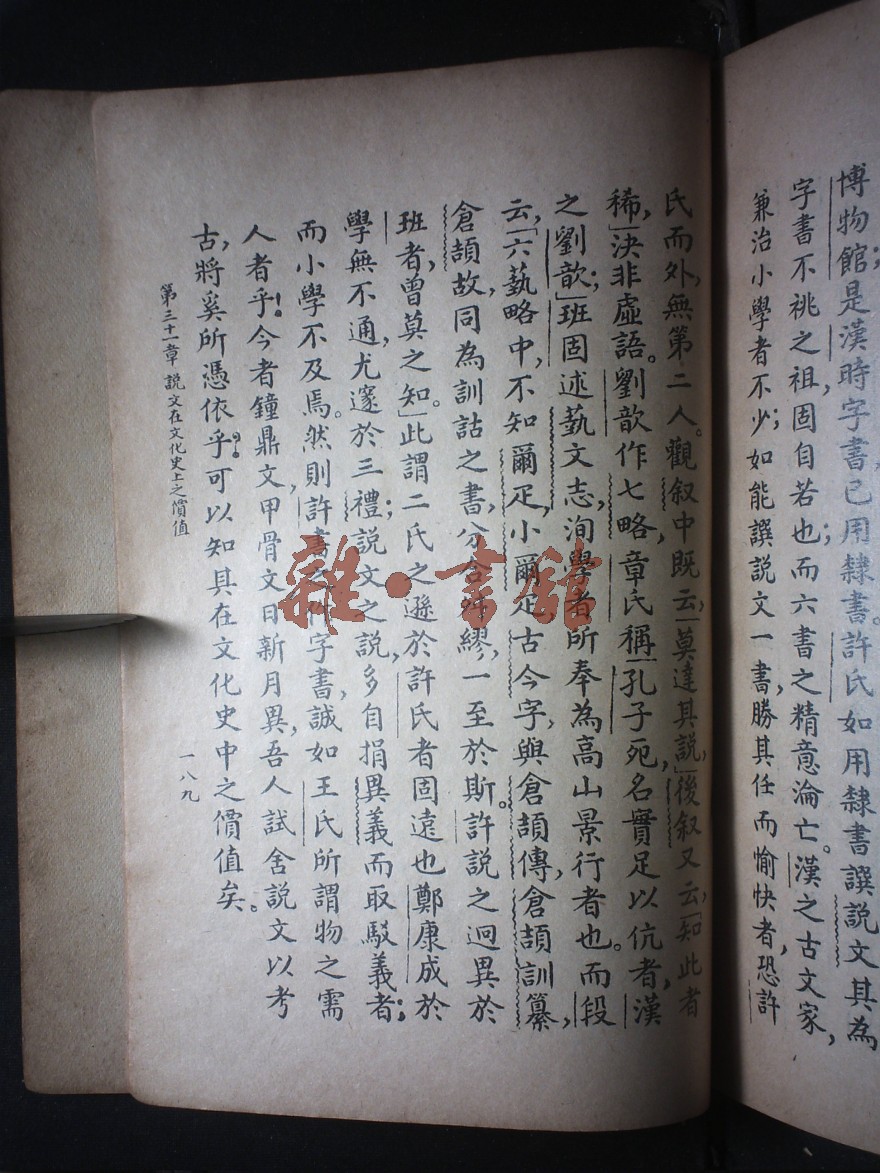 博物館；是漢時字書，已用隸書。許氏如用隸書譔說文，其為
字書不祧之祖，固自若也；而六書之精意淪亡。漢之古文家，
兼治小學者不少；如能譔說文一書，勝其任而愉快者，恐許
氏而外，無第二人。觀叙中既云，「莫達其說，」後叙又云，「知此者
稀，」決非虛語。劉歆作七略，章氏稱「孔子死，名實足以伉者，漢
之劉歆；」班固述藝文志，洵學者所奉為高山景行者也。而段
云，「六藝略中，不知爾疋，小爾疋，古今字，與倉頡傳，倉頡訓纂，
倉頡故，同為訓詁之書，分合舛繆，一至於斯。許說之迥異於
班者，曾莫之知。」此謂二氏之遜於許氏者固遠也。鄭康成於
學無不通，尤邃於三禮；說文之說，多自捐異義而取駁義者；
而小學不及焉。然則許書之作字書，誠如王氏所謂物之需
人者乎！今者鐘鼎文，甲骨文日新月異，吾人試舍說文以考
古，將奚所憑依乎？可以知其在文化史中之價值矣。
第三十一章 說文在文化史上之價值
一八九
雜·書館